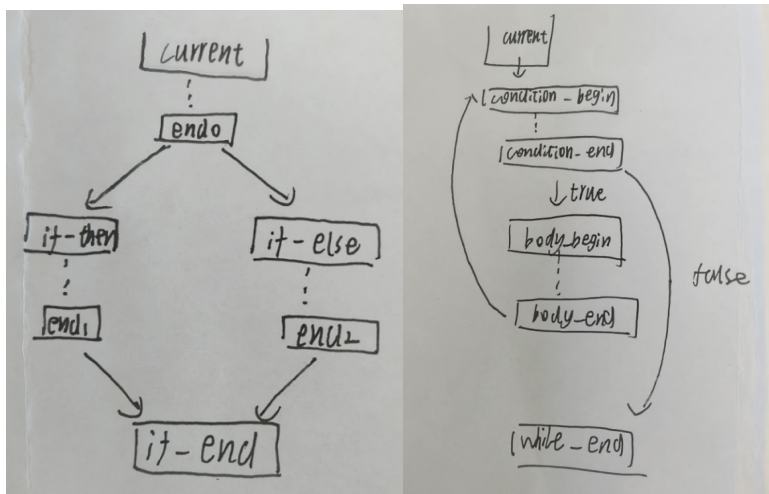 current
end0
if-then
if-else
end1
end2
if-end
current
condition_begin
condition-end
true
body_begin
false
body_end
while_end